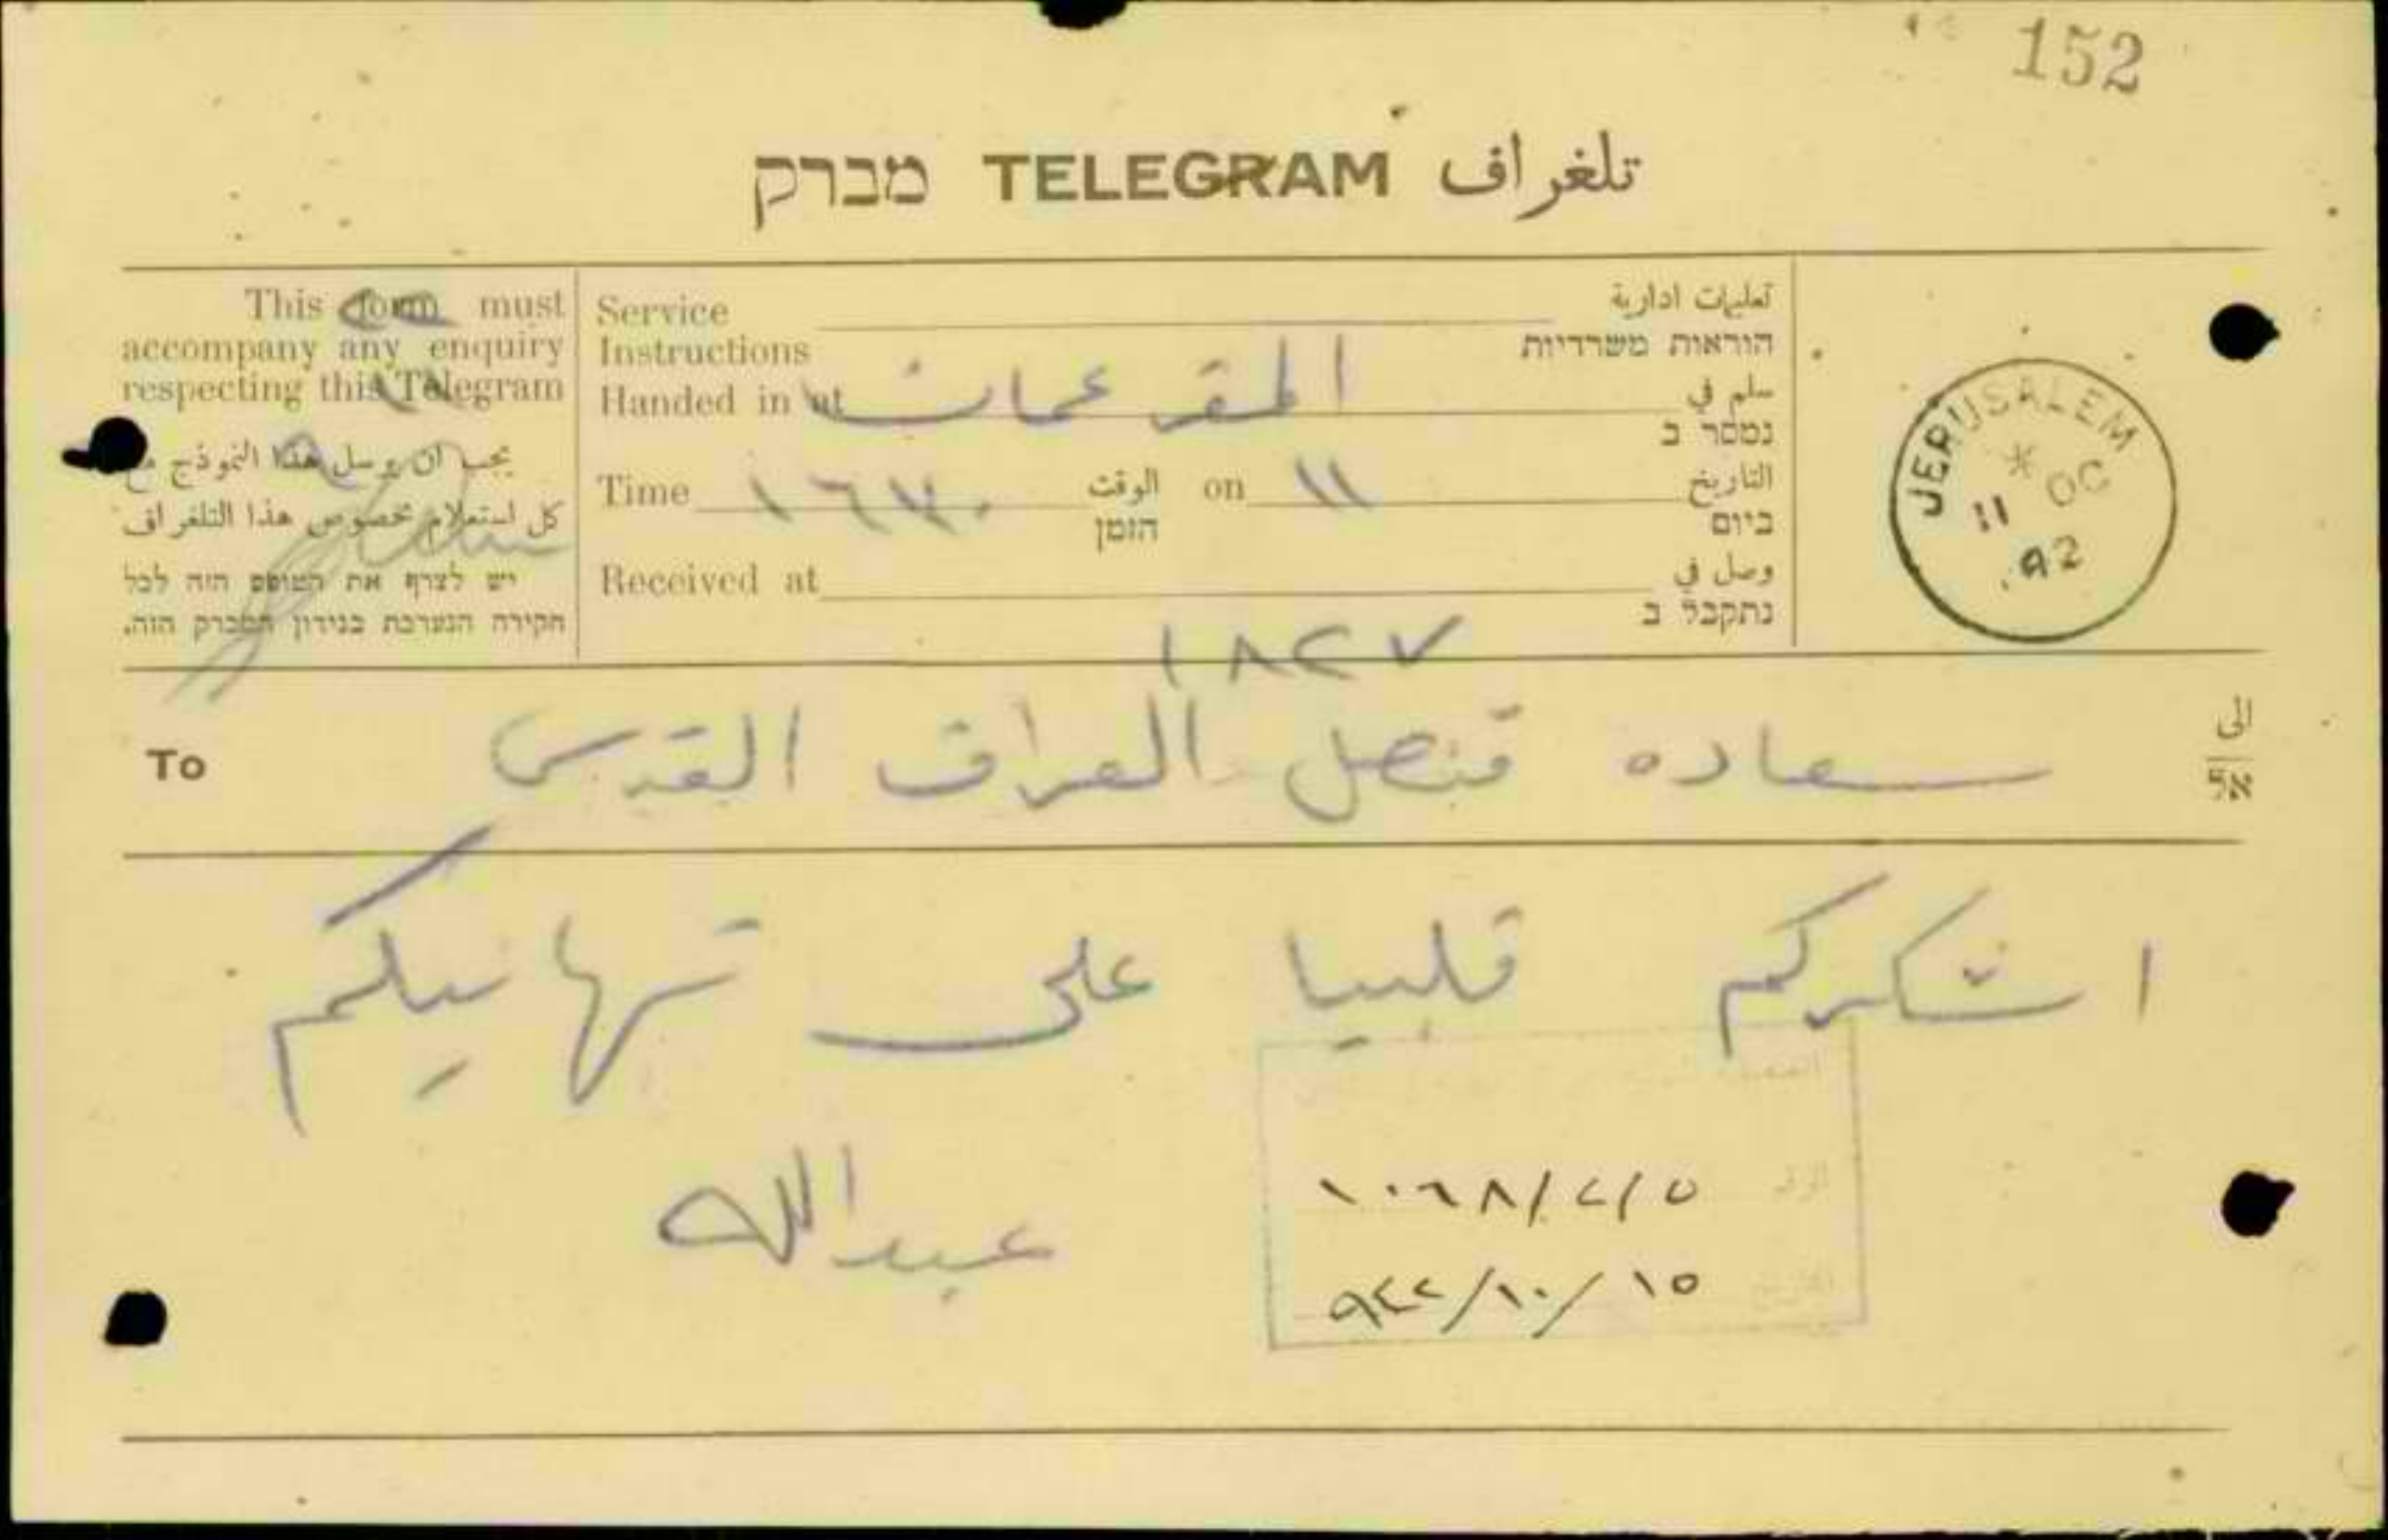 152
מברק TELEGRAM تلغراف
This form must
accompany any enquiry
respecting this Telegram
يجب ان يوسل هذا النموذج مع
كل استعلام بخصوص هذا التلغراف
יש לצרף את הטופס הזה לכל
חקירה הנערכת בנידון המברק הזה.
Service Instructions تعليمات ادارية
הוראות משרדיות
Handed in at المقر عمان سلم في
נמסר ב
Time ١٦٣٠ الوقت on ١١ التاريخ
הזמן ביום
Received at وصل في
נתקבל ב
١٨٢٧
JERUSALEM
11 OC
42
To سعاده قنصل العراق القدس الى
אל
اشكركم قلبيا على تهانيكم
عبدالله
١٠٦٨/٢/٥
٩٤٢/١٠/١٥